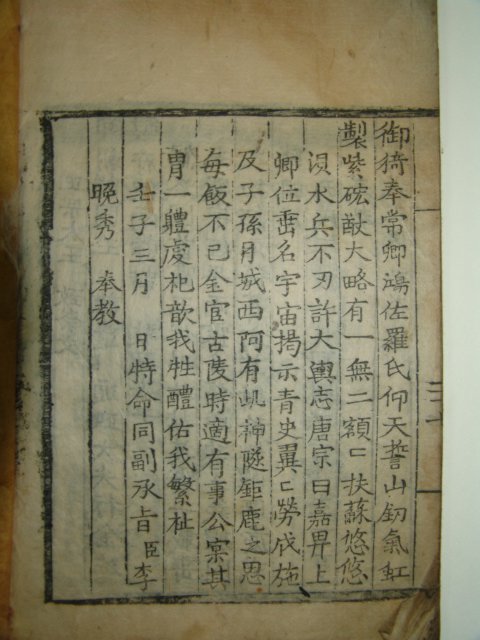 御猗奉常卿鴻佐羅氏仰天誓山釰氣虹
製紫硡猷大略有一無二額〻扶蘇悠悠
浿水兵不刃許大輿志唐宗曰嘉畀上
卿位崇名宇宙揭示青史翼〻勞伐施
及子孫月城西阿有屼神隧鉅鹿之思
每飯不已金官古陵時適有事公寀其
胄一體虔祀歆我牲醴佑我繁祉
壬子三月 日特命同副承旨臣李
晚秀 奉教